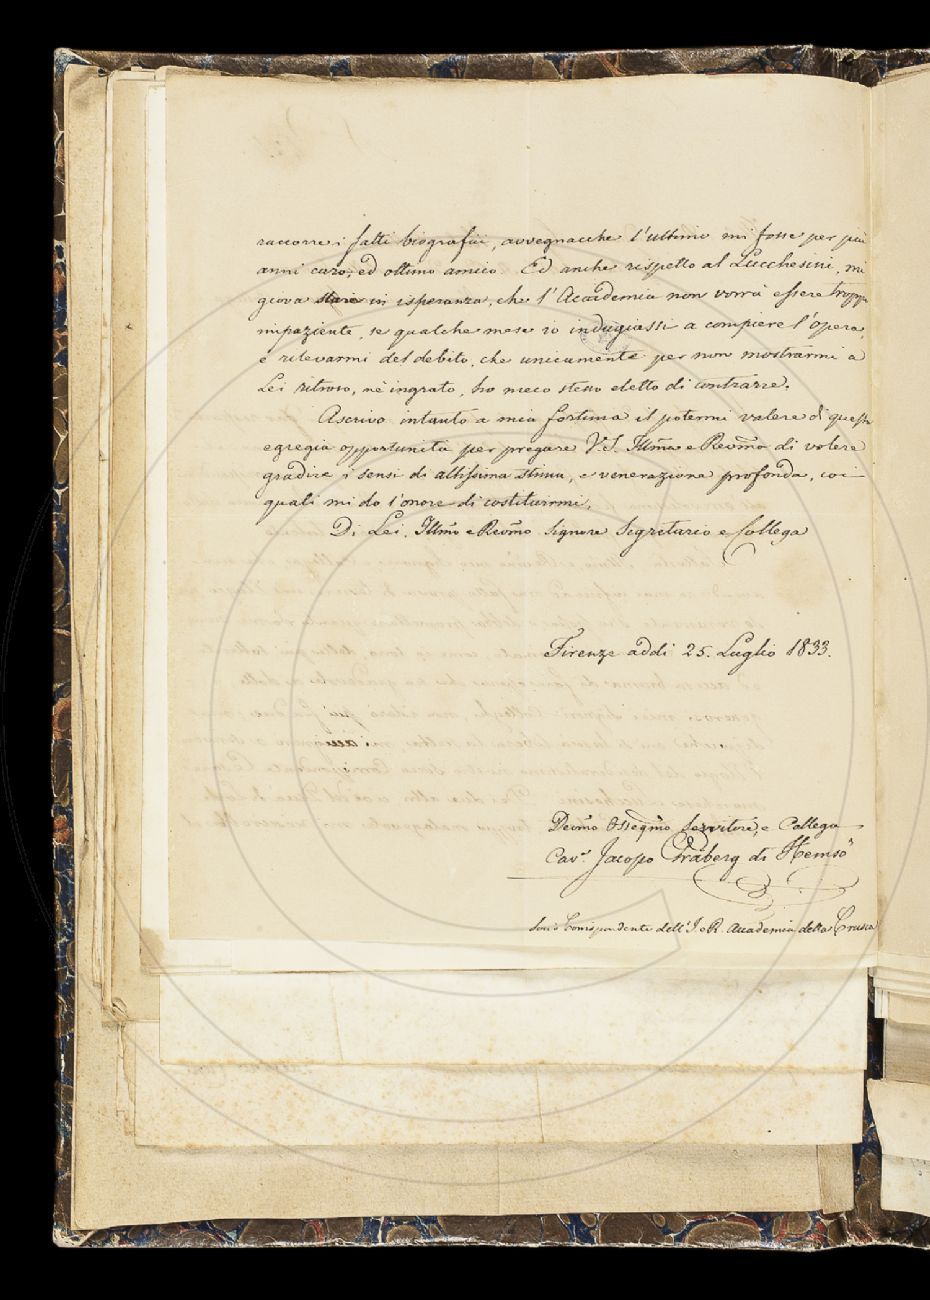 raccorre i fatti biografici, avvegnacche l'ultimo mi fosse per più
anni caro, ed ottimo amico. Ed anche rispetto al Lucchesini, mi
giova stare in isperanza, che l'Accademia non vorrà essere troppo
impaziente, se qualche mese io indugiassi a compiere l'opera,
e rilevarmi del debito, che unicamente per non mostrarmi a
Lei ritroso, nè ingrato, ho meco stesso eletto di contrarre.
Ascrivo intanto a mia fortuna il potermi valere di questa
egregia opportunità per pregare V.S. Illma e Revma di volere
gradire i sensi di altissima stima, e venerazione profonda, coi
quali mi do l'onore di costituirmi,
Di Lei, Illmo e Revmo Signore Segretario e Collega
Firenze addi 25. Luglio 1833.
Devmo Ossequmo Servitore, e Collega
Cav.r Jacopo Gråberg di Hemsö
Socio Corrispondente dell'I. e R. Accademia della Crusca